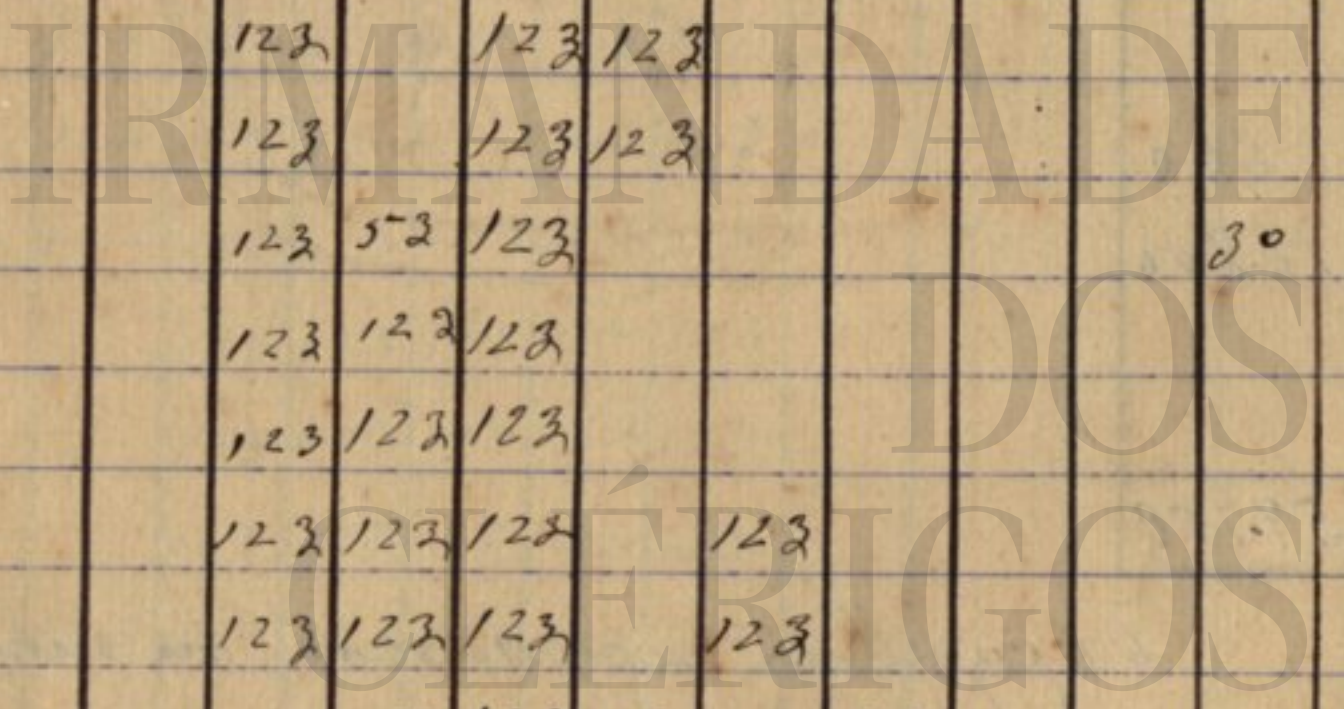 123 123 123
123 123 123
123 53 123 30
123 122 123
123 123 123
123 123 123 123
123 123 123 123
IRMANDADE
DOS
CLÉRIGOS